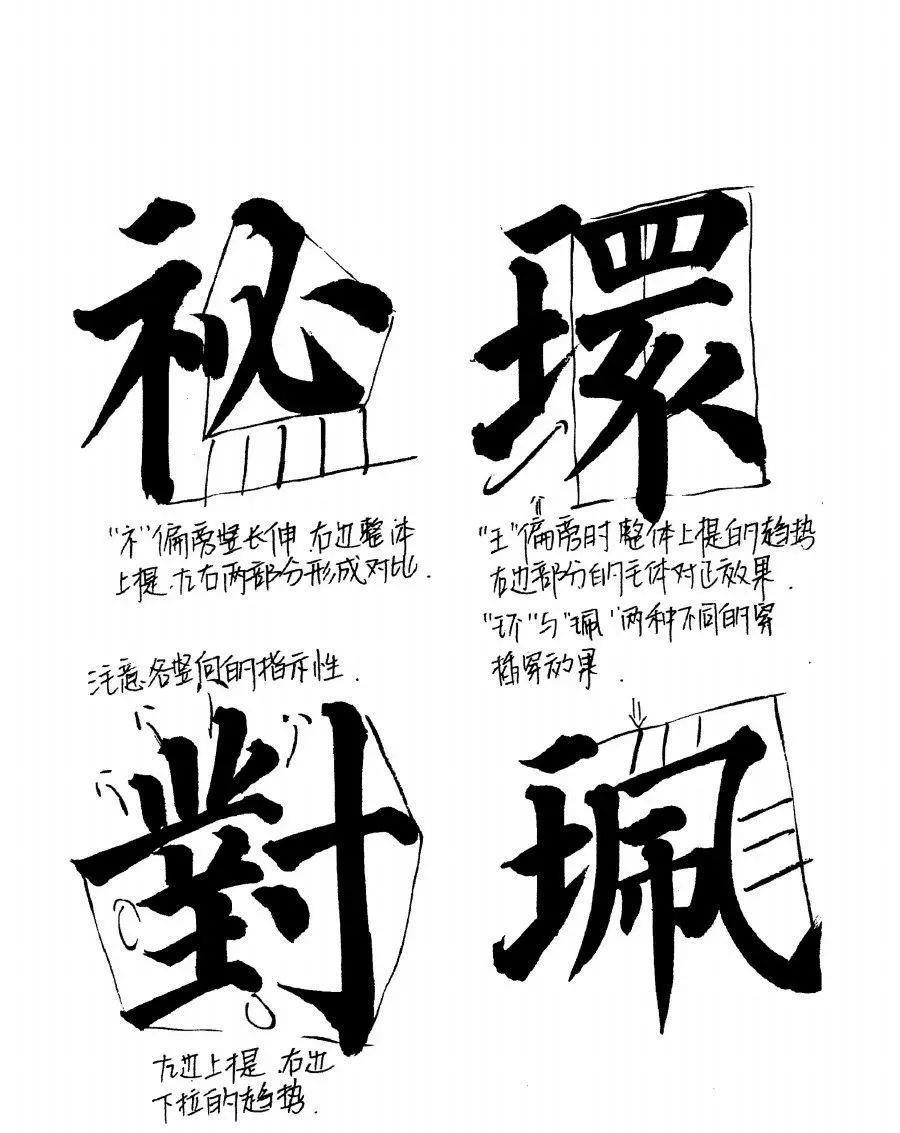 祕
環
"礻"偏旁竖长伸 右边整体
上提.左右两部分形成对比.
"王"偏旁时整体上提的趋势
右边部分的主体对正效果.
"环"与"珮"两种不同的穿
插穿效果.
注意各竖向的指示性.
對
珮
左边上提.右边
下拉的趋势.